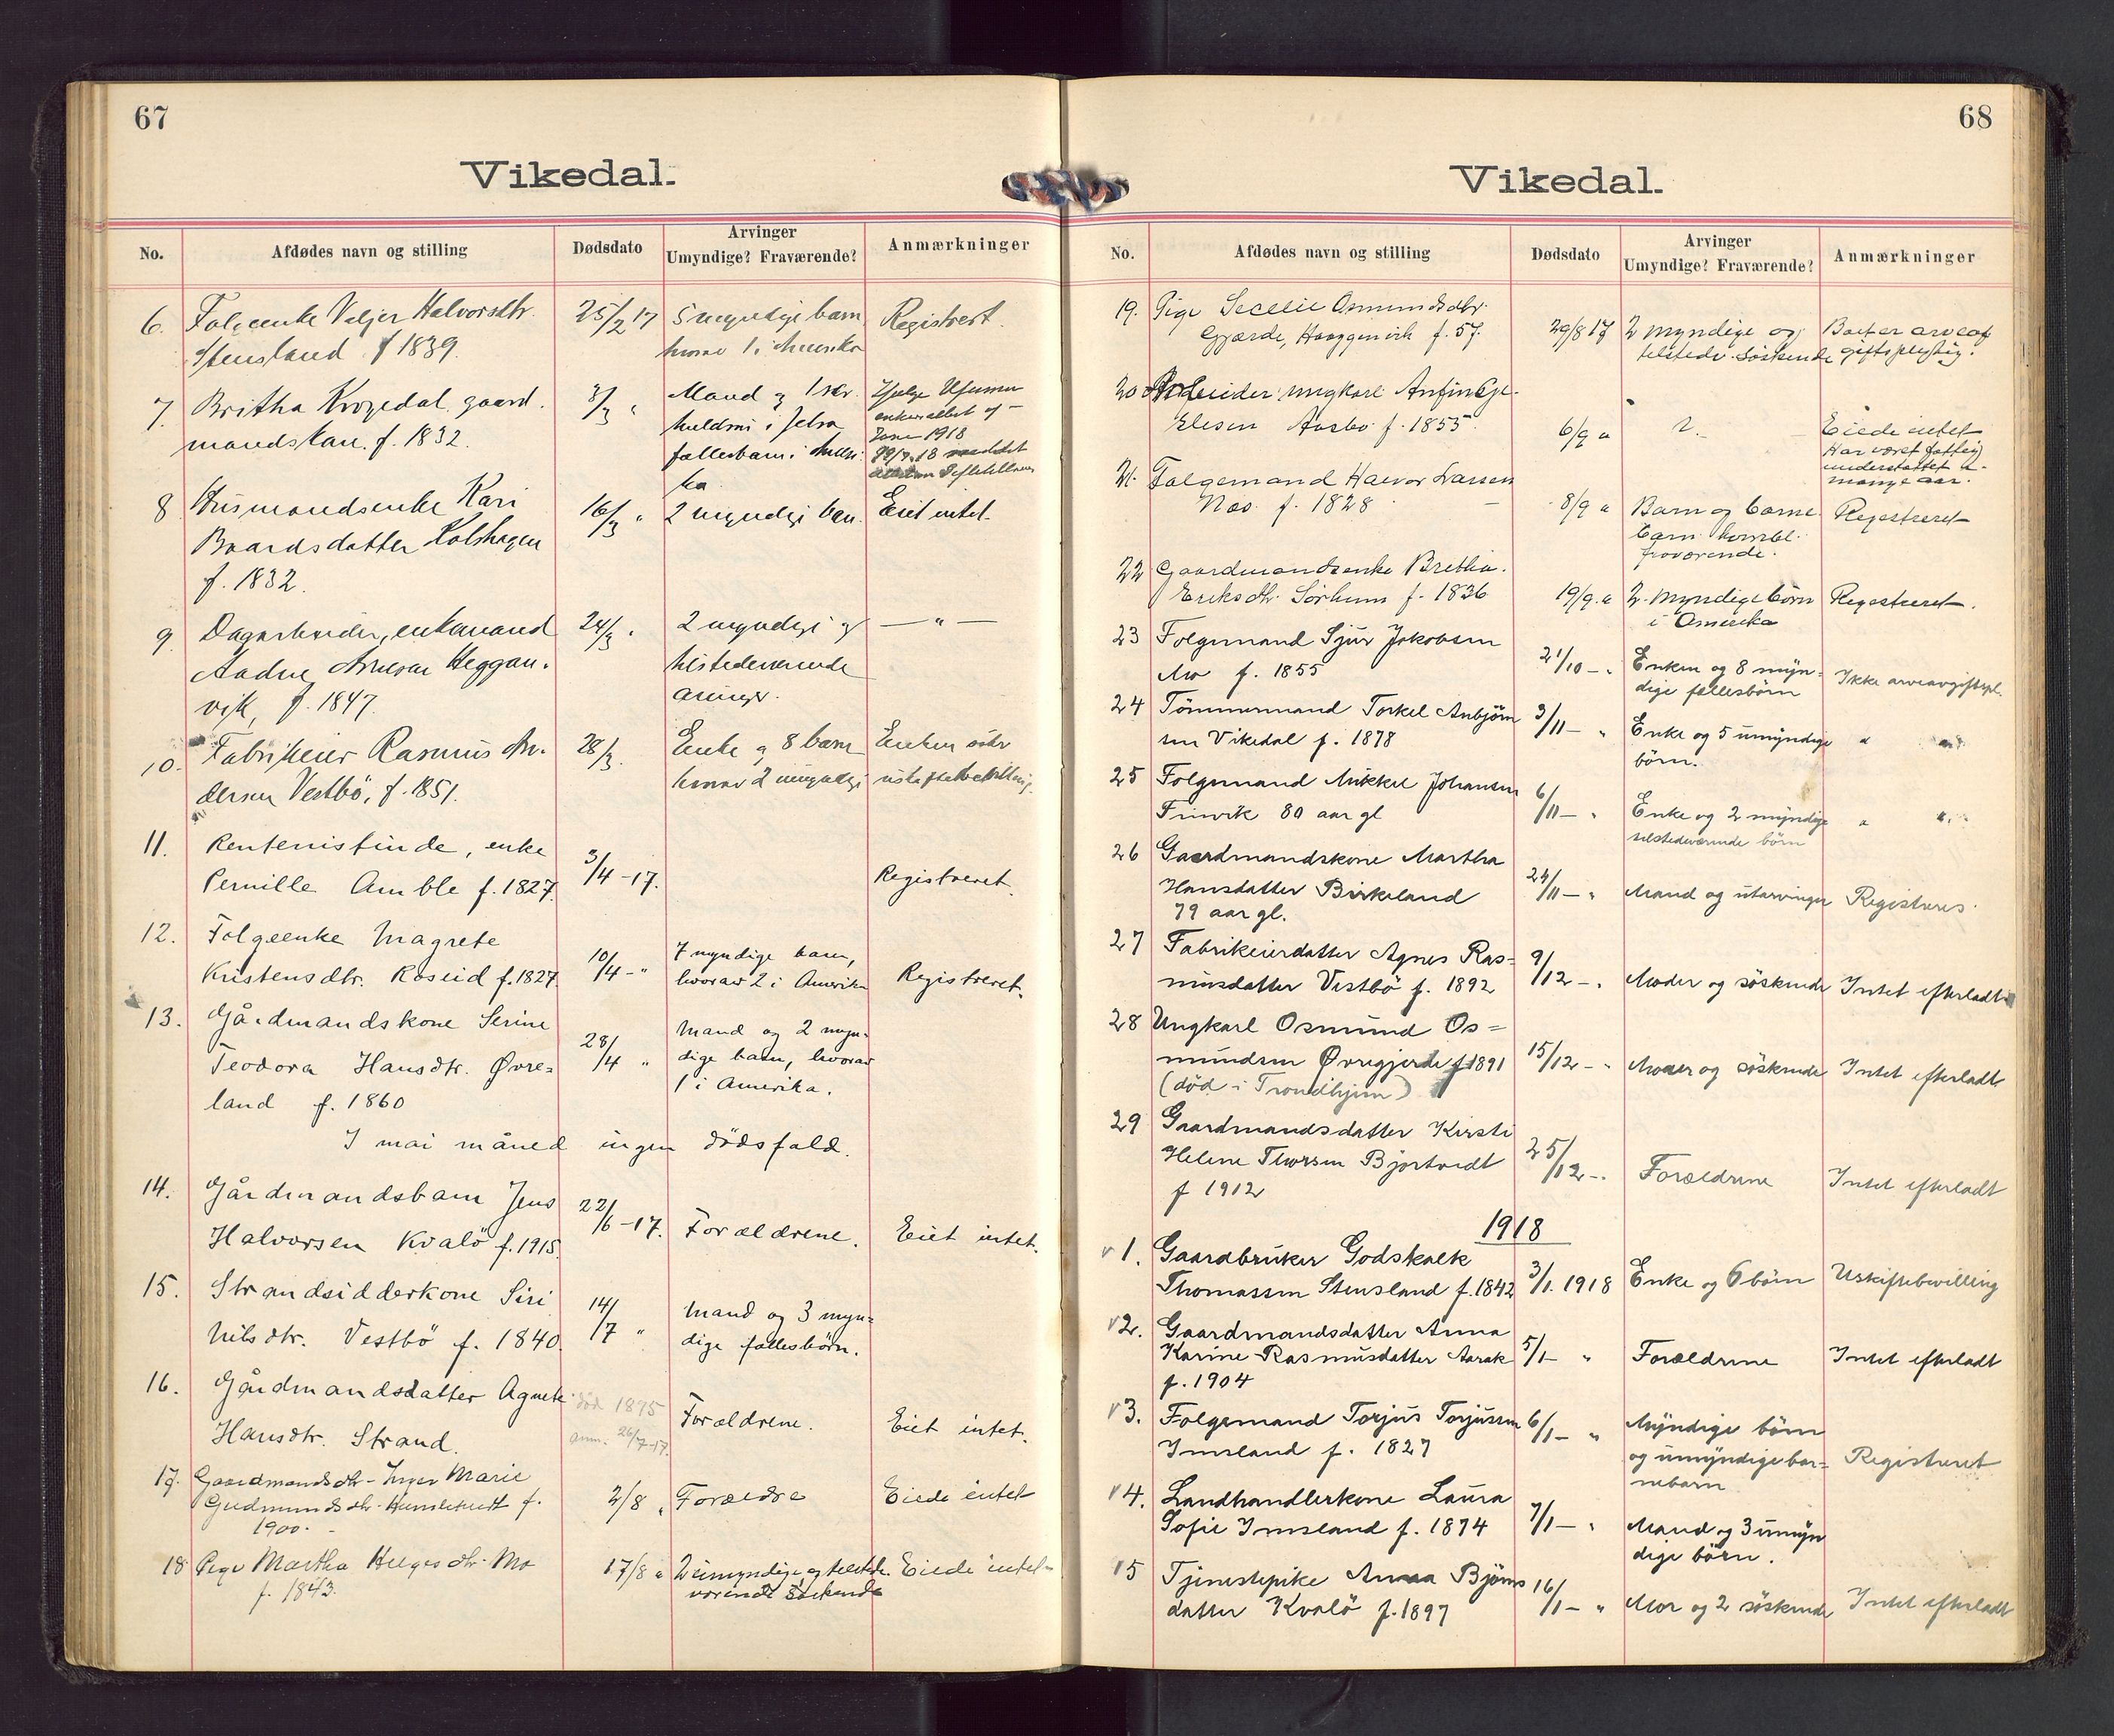 67
Vikedal.
No. Afdødes navn og stilling Dødsdato Arvinger Umyndige? Fraværende? Anmærkninger
6. Folgeenke Halvorsdtr. 25/2 17 5 myndige barn Registrert.
Stensland f 1839. hvorav 1 i Amerika
7. Britha Krogedal, gaard- 8/3 " Mand og 1
mandskone. f. 1832. i
fællesbarn i Ameri-
ka
June 1918
8 Husmandsenke Kari 16/3 " 2 myndige barn. Eiet intet.
Baardsdatter
f. 1832.
9. Dagarbeider, enkemand 24/3 " 2 myndige og — " —
Aadne Heggan- tilstedeværende
vik, f. 1847. arvinger.
10. Fabrikeier Rasmus An- 28/3. Enke og 8 barn Enken
dersen Vestbö, f. 1851. hvorav 2 umyndige
11. Rentenistinde, enke
Pernille Amble f. 1827. 3/4-17. Registreret.
12. Folgeenke Magrete 7 myndige barn,
Kristensdtr. Røseid f. 1827. 10/4-" hvorav 2 i Amerika Registreret.
13. Gårdmandskone Serine Mand og 2 myn-
Teodora Hansdtr. Øvre= 28/4 " dige barn, hvorav
land f. 1860 1 i Amerika.
I mai måned ingen dödsfald.
14. Gårdmandsbarn Jens
Halvorsen Kvalö f. 1915. 22/6-17. Forældrene. Eiet intet.
15. Strandsidderkone Siri
Nilsdtr. Vestbö f. 1840. 14/7 " Mand og 3 myn=
dige fællesbörn.
16. Gårdmandsdatter Agnete död 1875
Hansdtr. Strand. anm. 26/7-17. Forældrene. Eiet intet.
17. Gaardmandsdtr. Inger Marie
Gudmundsdtr. f. 2/8 " Forældre Eiede intet
1900.
18 Pige Martha Helgesdtr. Mo 17/8 " 2 umyndige og tilstede- Eiede intet
f. 1843. værende søskende
68
Vikedal.
No. Afdødes navn og stilling Dødsdato Arvinger Umyndige? Fraværende? Anmærkninger
19. Pige Secelie Osmundsdtr.
Gjærde, f. 57. 29/8 17 2 myndige og Boet er arveaf
tilstede. Söskende giftspligtig.
20 Arbeider ungkarl
Elisen f. 1855. 6/9 " ?. Eiede intet
Har været fattig
understøttet i
mange aar.
21. Folgemand Halvor Larsen
Næs f. 1828 8/9 " Barn og barne Registreret
barn
fraværende.
22 Gaardmandsenke Bretha
Eriksdtr. Sörhum f. 1836 19/9. " 2 myndige börn Registreret.
i Amerika
23 Folgemand Sjur Jakobsen
Mo f. 1855 21/10 - " Enken og 8 myn= Ikke arveavgiftspl.
dige fællesbörn
24 Tömmermand Torkel Anbjörn
sen Vikedal f. 1878 3/11 - " Enke og 5 umyndige " "
börn.
25 Folgemand Mikkel Johansen
80 aar gl 6/11 - " Enke og 2 myndige " "
tilstedeværende börn
26 Gaardmandskone Martha
Hansdatter Birkeland 24/11 - " Mand og utarvinger Registreres.
79 aar gl.
27 Fabrikeierdatter Agnes Ras=
musdatter Vestbö f. 1892 9/12 - " Moder og söskende Intet efterladt
28 Ungkarl Osmund Os=
mundsen Øvregjerde f 1891 15/12 - " Moder og söskende Intet efterladt
(död i Trondhjem)
29 Gaardmandsdatter Kirsti
Helene Thorsen Bjortvedt 25/12 - " Forældrene Intet efterladt
f 1912
1918
v 1. Gaardbruker Godskalk
Thomassen Stensland f. 1842 3/1. 1918 Enke og 6 börn Uskiftebevilling
v 2. Gaardmandsdatter Anna
Karine Rasmusdatter Aarak 5/1 - " Forældrene Intet efterladt
f. 1904
v 3. Folgemand Torjus Torjussen 6/1 - " Myndige börn
Imsland f. 1827 og umyndige bar= Registreret
nebarn
v 4. Landhandlerkone Laura
Sofie Imsland f. 1874 7/1 - " Mand og 3 umyn
dige börn.
15 Tjenestepike Anna Björns
datter Kvalö f. 1897 16/1 - " Mor og 2 söskende Intet efterladt